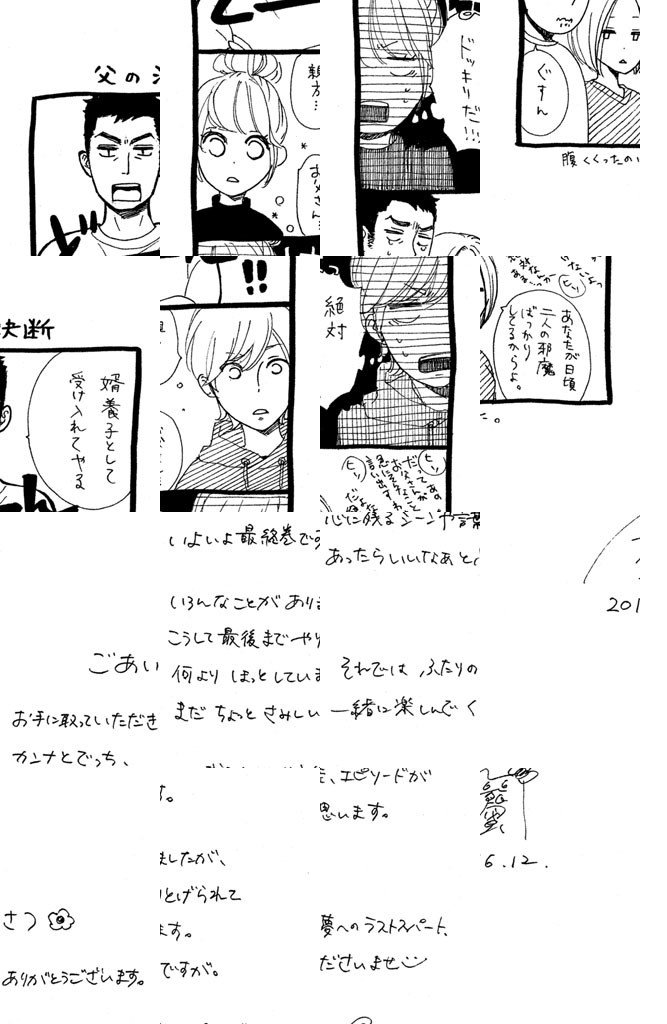 父の
親方…
お父さん
ドッキリだ!!!
ぐすん
腹くくったの
決断
婿養子として
受け入れてやる
!!
絶対
ヒソ
ヒソ
あなたが日頃
二人の邪魔
ばっかり
してるからよ。
た。
ごあい
お手に取っていただき
カンナとでっち、
いよいよ最終巻です
いろんなことがありま
こうして最後までやり
何より ほっとしていま
まだ ちょっと さみしい
心に残るシーンや言葉
あったらいいなぁと
それでは ふたりの
一緒に楽しんで く
201
さつ
ありがとうございます。
た。
ましたが、
とげられて
ます。
ですが。
、エピソードが
思います。
夢へのラストスパート、
ださいませ
6.12.